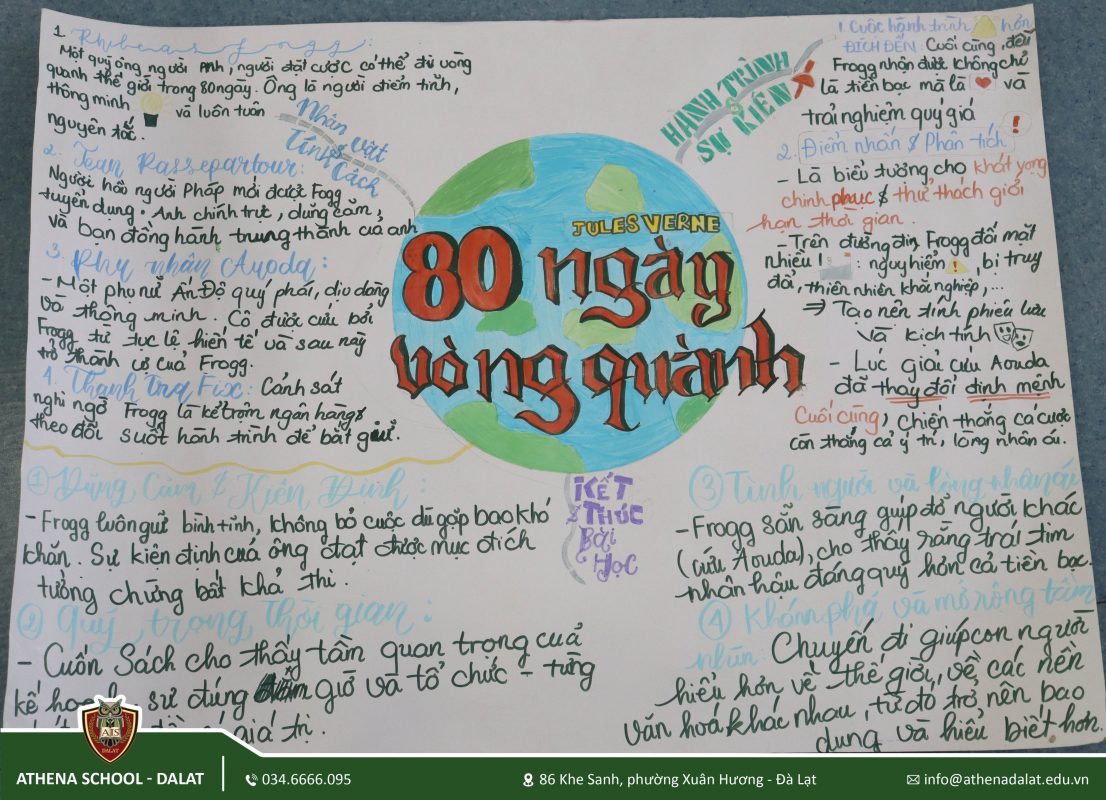 1. Phileas Fogg:
Một quý ông người Anh, người đặt cược có thể đi vòng
quanh thế giới trong 80 ngày. Ông là người điềm tĩnh,
thông minh và luôn tuân
nguyên tắc.
Nhân vật
& Tính Cách
2. Jean Passepartour:
Người hầu người Pháp mới được Fogg
tuyển dụng. Anh chính trực, dũng cảm,
và bạn đồng hành trung thành của anh
3. Phu nhân Auoda:
- Một phụ nữ Ấn Độ quý phái, dịu dàng
và thông minh. Cô được cứu bởi
Frogg từ tục lệ hiến tế và sau này
trở thành vợ của Frogg.
4. Thanh tra Fix: Cảnh sát
nghi ngờ Frogg là kẻ trộm ngân hàng &
theo dõi suốt hành trình để bắt giữ.
JULES VERNE
80 ngày
vòng quành
HÀNH TRÌNH
& SỰ KIỆN
1. Cuộc hành trình hơn
ĐÍCH ĐẾN: Cuối cùng, đều
Frogg nhận được không chỉ
là tiền bạc mà là và
trải nghiệm quý giá
2. Điểm nhấn & Phân tích
- Là biểu tượng cho khát vọng
chinh phục & thử thách giới
hạn thời gian.
- Trên đường đi, Frogg đối mặt
nhiều ! : nguy hiểm, bị truy
đổi, thiên nhiên khắc nghiệp,...
⇒ Tạo nên tính phiêu lưu
và kịch tính
- Lúc giải cứu Aouda
đã thay đổi định mệnh
Cuối cùng, chiến thắng cá cược
còn thắng cả ý trí, lòng nhân ái.
KẾT
THÚC
& Bài
Học
① Dũng Cảm & Kiên Định:
- Frogg luôn giữ bình tĩnh, không bỏ cuộc dù gặp bao khó
khăn. Sự kiên định của ông đạt được mục đích
tưởng chừng bất khả thi.
② Quý trọng thời gian:
- Cuốn Sách cho thấy tầm quan trọng cuả
kế sự đúng giờ và tổ chức - từng
giá trị.
③ Tình người và lòng nhân ái
- Frogg sẵn sàng giúp đỡ người khác
(cứu Aouda), cho thấy rằng trái tim
nhân hậu đáng quý hơn cả tiền bạc.
④ Khám phá và mở rộng tầm
nhìn: Chuyến đi giúp con người
hiểu hơn về thế giới, về các nền
văn hoá khác nhau, từ đó trở nên bao
dung và hiểu biết hơn.
AIS
DALAT
ATHENA SCHOOL - DALAT
034.6666.095
86 Khe Sanh, phường Xuân Hương - Đà Lạt
info@athenadalat.edu.vn